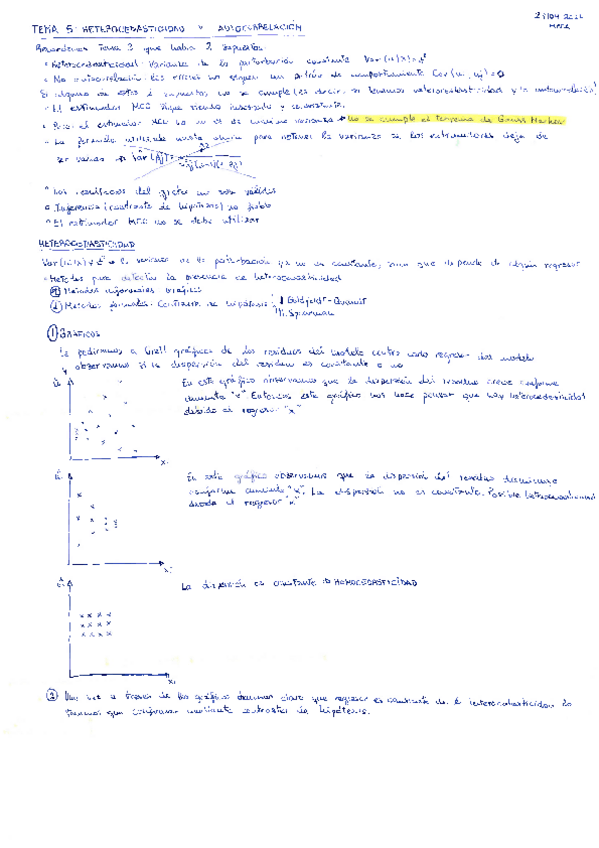 TEMA 5: HETEROCEDASTICIDAD Y AUTOCORRELACIÓN
Recordemos Tema 3 que había 2 supuestos:
Varianza de la perturbación constante Var(u|x)=
No autocorrelación: los errores no siguen un patrón de comportamiento Cov(ui, uj)=0
Si alguno de estos 2 supuestos no se cumple (es decir, si tenemos heterocedasticidad y/o autocorrelación)
El estimador MCO sigue siendo insesgado y consistente.
Pero el estimador MCO ya no es de mínima varianza → No se cumple el teorema de Gauss Markov
La fórmula utilizada hasta ahora para obtener la varianza de los estimadores deja de
ser válida → Var
Los resultados del gretl no son válidos
Inferencia (contraste de hipótesis) no fiable
El estimador MCO no se debe utilizar
HETEROCEDASTICIDAD
la varianza de la perturbación ya no es constante, sino que depende de algún regresor
Métodos para detectar la presencia de heterocedasticidad
① Métodos informales: Gráficos
② Métodos formales: Contraste de hipótesis: Goldfeldt-Quandt
Spearman
① GRÁFICOS
Le pediremos a Gretl gráficos de los residuos del modelo contra cada regresor del modelo
y observamos si la dispersión del residuo es constante o no
En este gráfico observamos que la dispersión del residuo crece conforme
aumenta "x". Entonces este gráfico nos hace pensar que hay heterocedasticidad
debido al regresor "x"
En este gráfico observamos que la dispersión del residuo disminuye
conforme aumenta "x". La dispersión no es constante. Posible heterocedasticidad
debido al regresor "x"
La dispersión es constante → HOMOCEDASTICIDAD
② Una vez a través de los gráficos tenemos claro que regresor es causante de la heterocedasticidad lo
tenemos que confirmar mediante contraste de hipótesis.